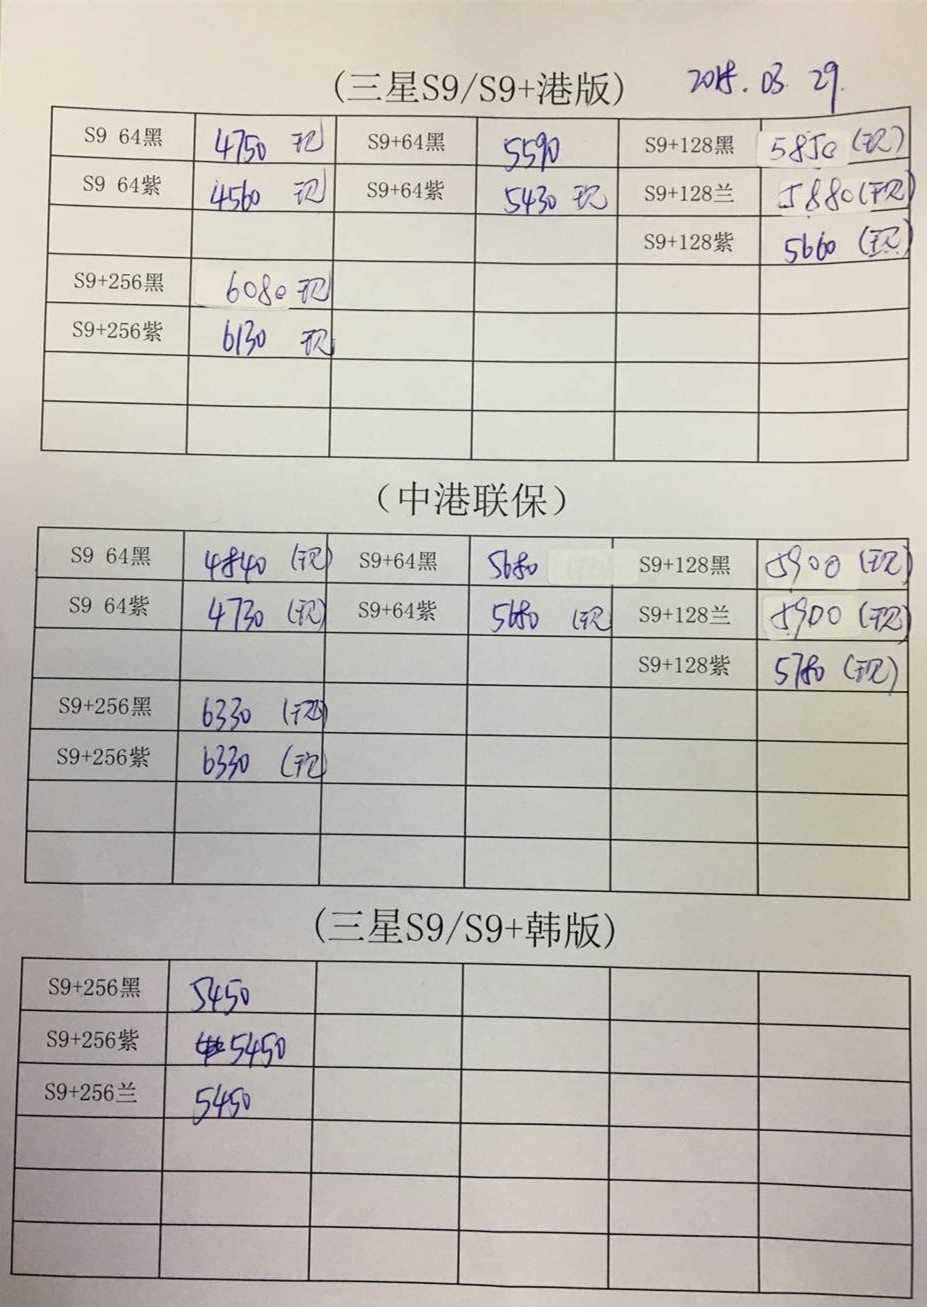 (三星S9/S9+港版) 2018.03.29.
S9 64黑 4750 现 S9+64黑 5590 S9+128黑 5850 (现)
S9 64紫 4560 现 S9+64紫 5430 现 S9+128兰 5880 (现)
S9+128紫 5660 (现)
S9+256黑 6080 现
S9+256紫 6130 现
（中港联保）
S9 64黑 4840 (现) S9+64黑 5680 S9+128黑 5900 (现)
S9 64紫 4730 (现) S9+64紫 5680 (现 S9+128兰 5900 (现)
S9+128紫 5780 (现)
S9+256黑 6330 (现)
S9+256紫 6330 (现
(三星S9/S9+韩版)
S9+256黑 5450
S9+256紫 5450
S9+256兰 5450